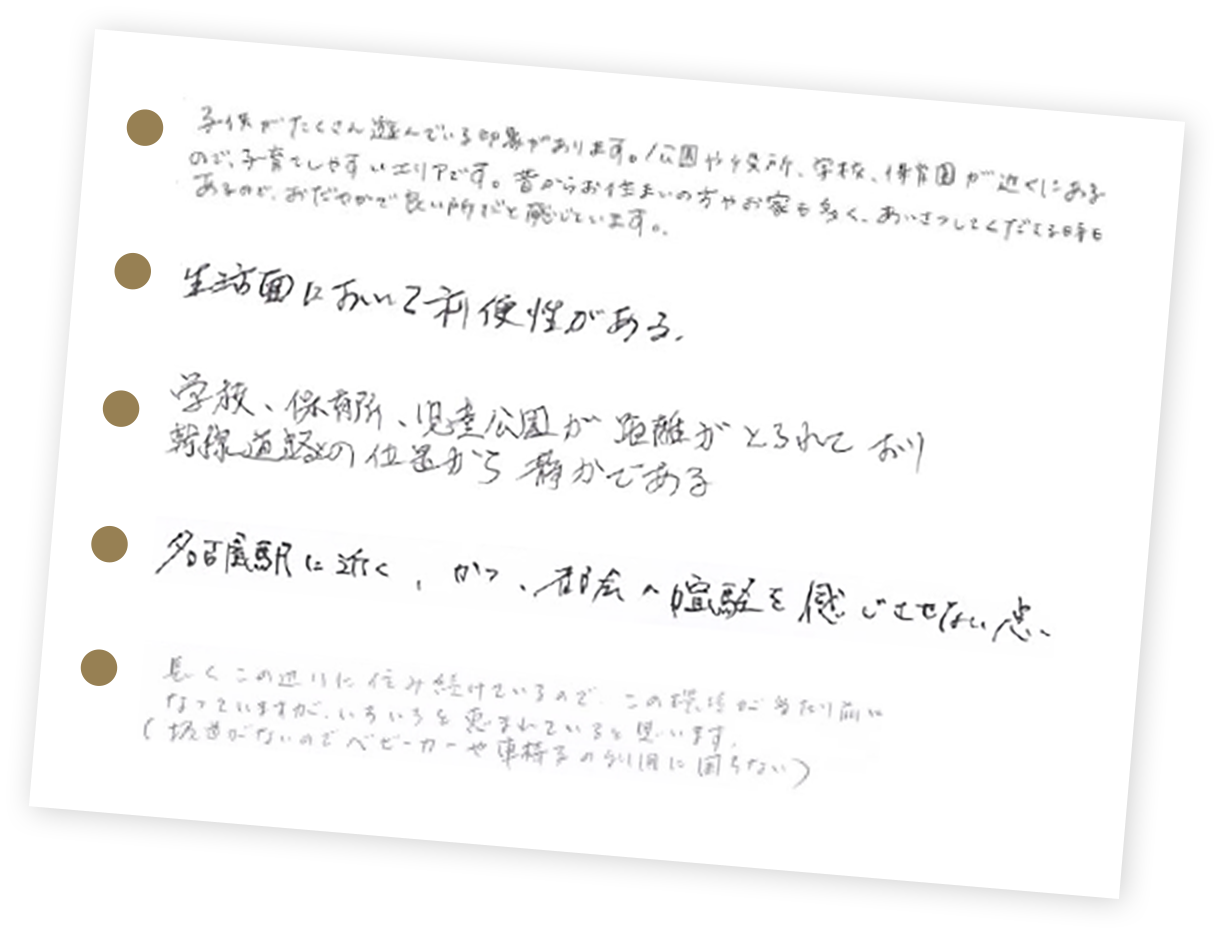 子供がたくさん遊んでいる印象があります。公園や役所、学校、保育園が近くにある
ので、子育てしやすいエリアです。昔からお住まいの方やお家も多く、あいさつしてくださる時も
あるので、おだやかで良い所だと感じています。
生活面において利便性がある。
学校、保育所、児童公園が距離がとられており
幹線道路との位置から静かである
名古屋駅に近く、かつ、都会へ喧騒を感じさせない点、
長くこの辺りに住み続けているので、この環境が当たり前に
なっていますが、いろいろと恵まれていると思います。
(坂道がないのでベビーカーや車椅子の利用に困らない)